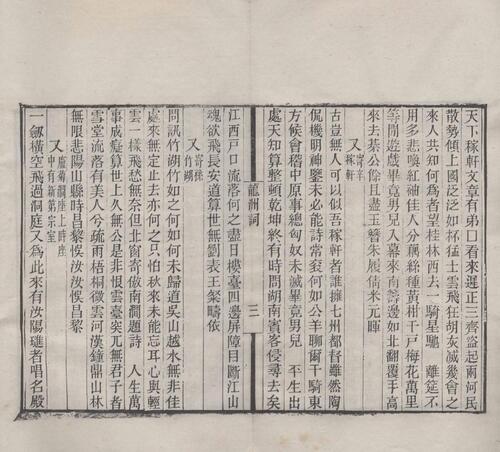 天下稼軒文章有弟口看來遲正三齊盜起兩河民
散勢傾上國泛泛如杯猛士雲飛狂胡灰滅幾會之
來人共知何爲者望桂林西去一騎星馳　離筵不
用多悲喚紅袖佳人分藕絲種黃柑千戶梅花萬里
等閒遊戲畢竟男兒入幕來南籌邊如北翻覆手高
來去棊公餘且盡玉簪朱履倩米元暉
又寄辛稼軒
古豈無人可以似吾稼軒者誰擁七州都督雖然陶
侃機明神鑒未必能詩常袞何如公羊聊爾千騎東
方候會稽中原事總匈奴未滅畢竟男兒　平生出
處天知算整頓乾坤終有時問湖南賓客侵尋去矣
龍洲詞　三
江西戶口流落何之盡日樓臺四邊屏障目斷江山
魂欲飛長安道算世無劉表王粲疇依
又寄孫竹湖
問訊竹湖竹如之何如何未歸道吳山越水無非佳
處來無定止去亦何之只怕秋來未能忘耳心與輕
雲一樣飛愁無奈但北窗寄傲南澗題詩　人生萬
事成癡算世上久無公是非恨雲臺突兀無君子者
雪堂流落有美人兮疏雨梧桐微雲河漢鐘鼎山林
無限悲陽山縣時昌黎悞汝汝悞昌黎
又盧菊澗座上時座中有新第宗室
一劔橫空飛過洞庭又爲此來有汝陽璡者唱名殿